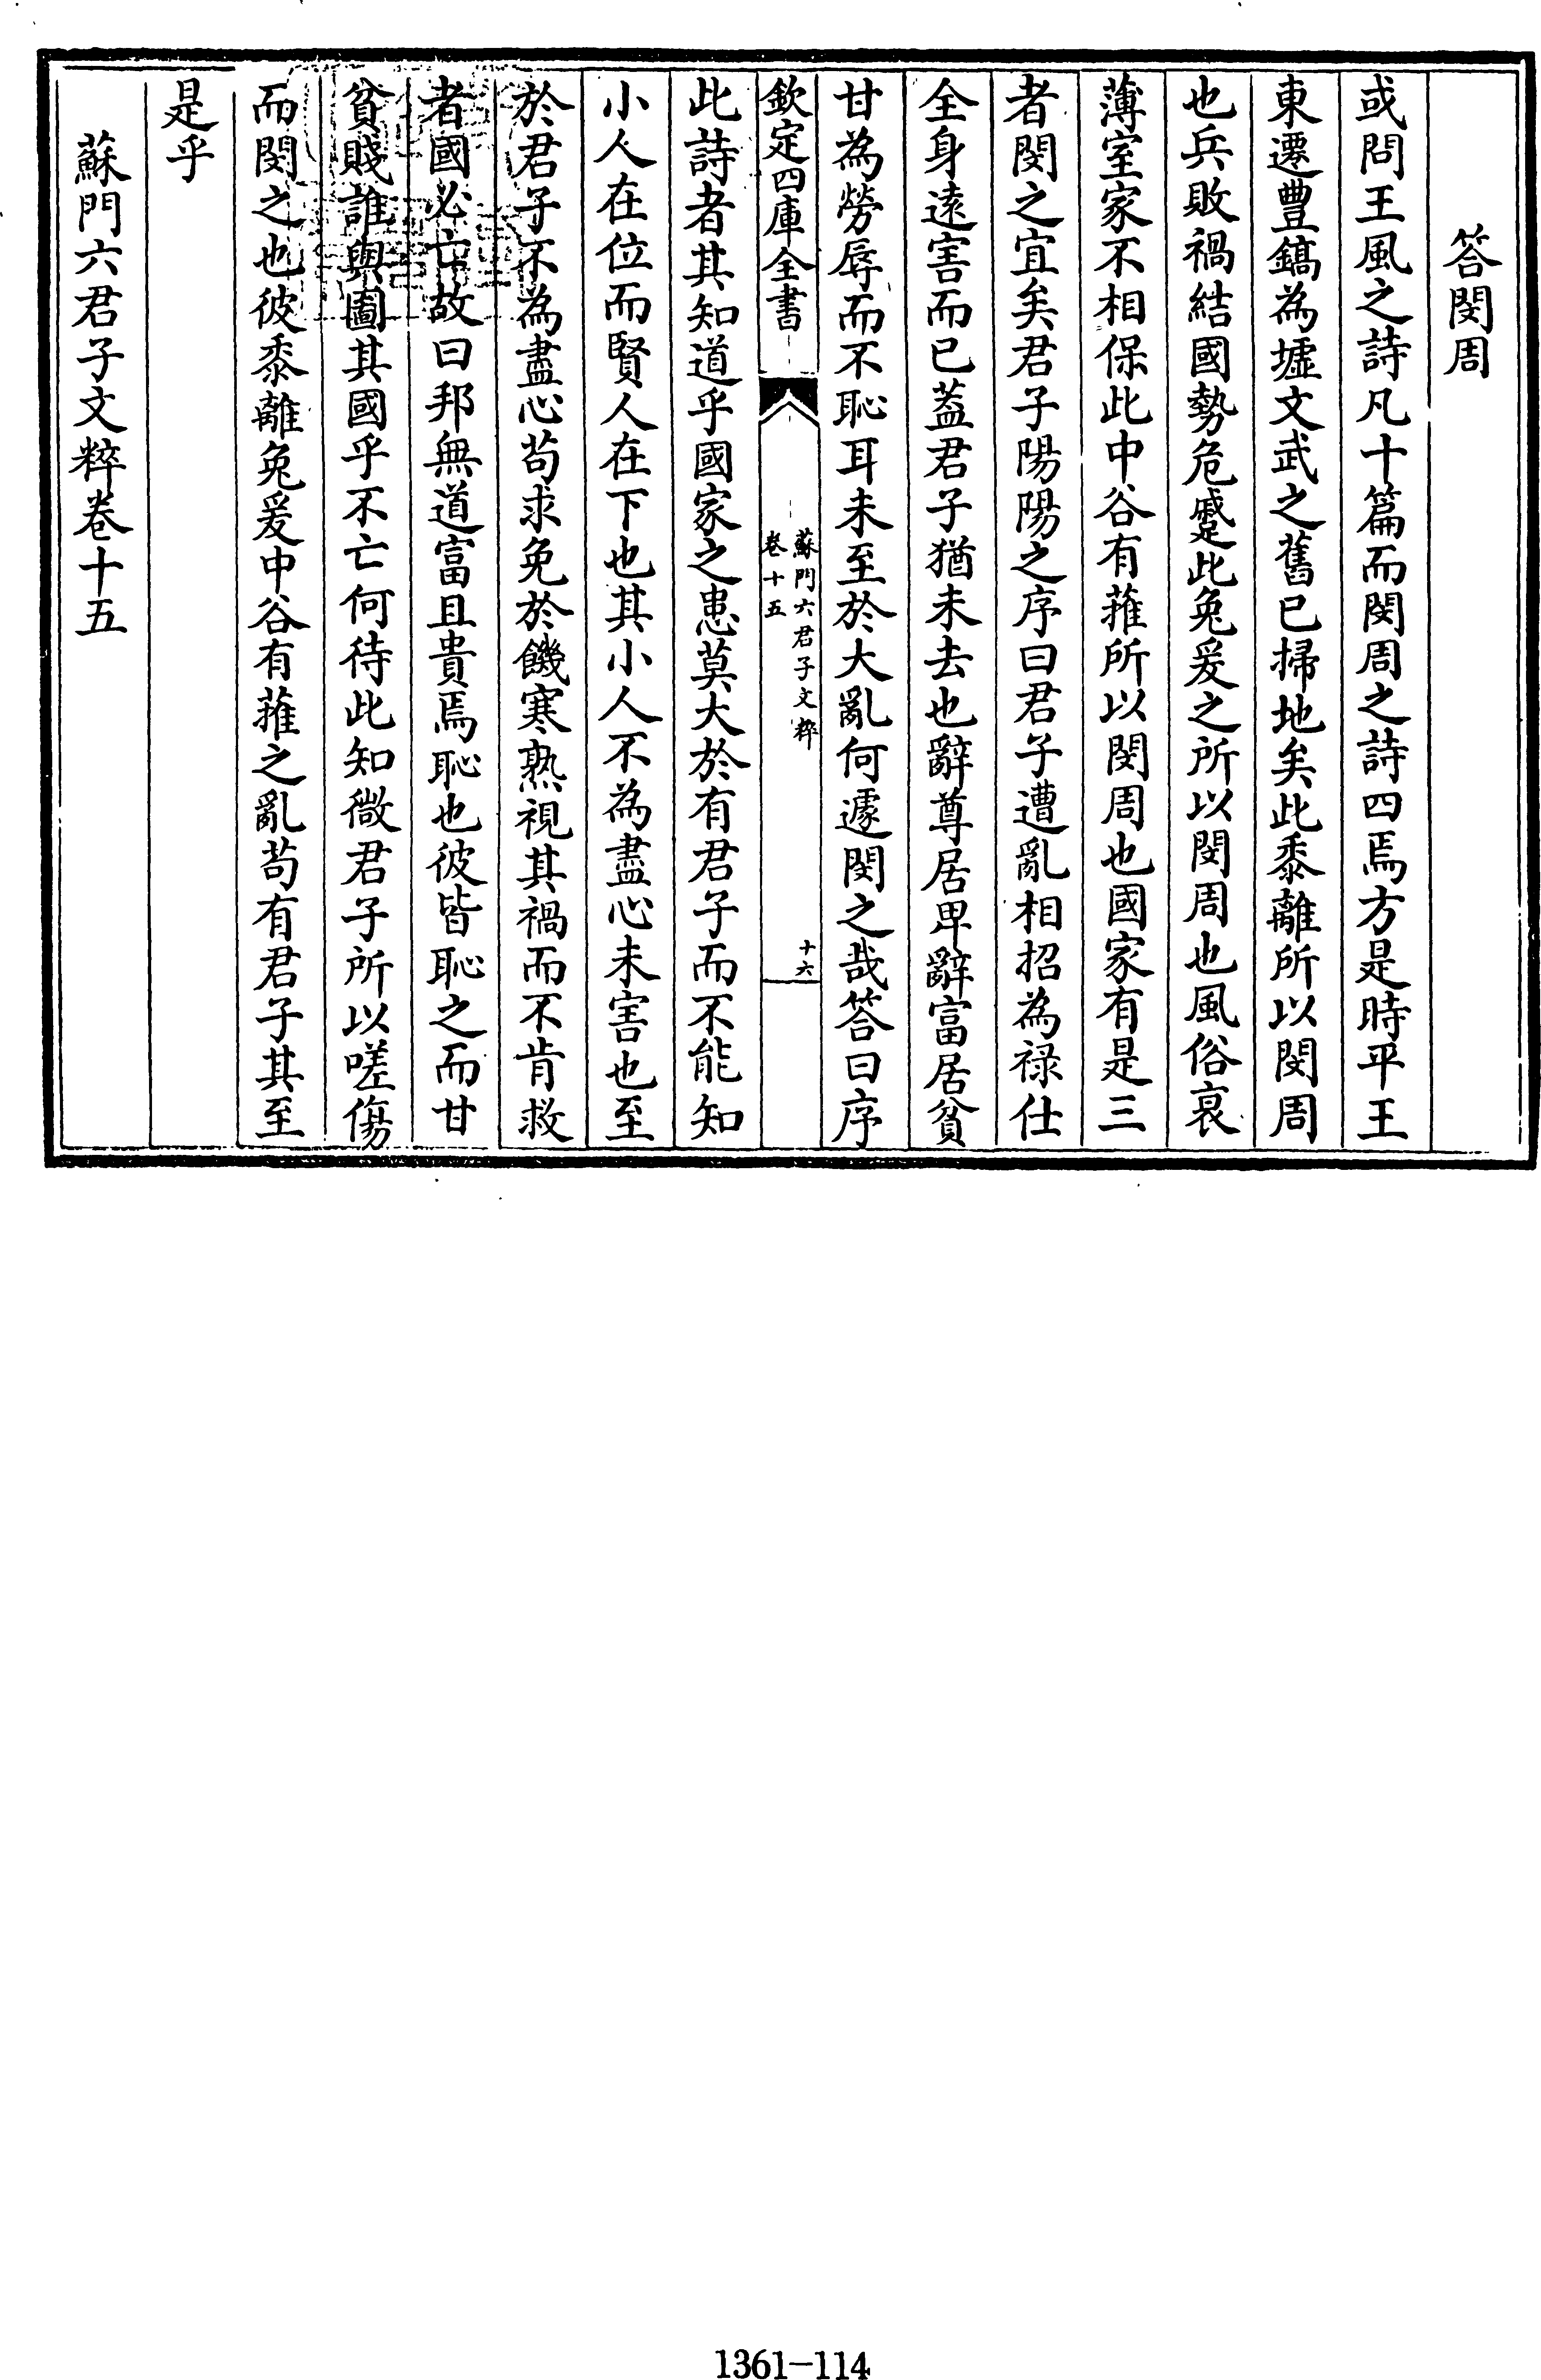 答閔周
或問王風之詩凡十篇而閔周之詩四焉方是時平王
東遷豐鎬為墟文武之舊已掃地矣此黍離所以閔周
也兵敗禍結國勢危蹙此兔爰之所以閔周也風俗衰
薄室家不相保此中谷有蓷所以閔周也國家有是三
者閔之宜矣君子陽陽之序曰君子遭亂相招為禄仕
全身遠害而已蓋君子猶未去也辭尊居卑辭富居貧
甘為勞辱而不恥耳未至於大亂何遽閔之哉答曰序
欽定四庫全書
蘇門六君子文粹
卷十五
十六
此詩者其知道乎國家之患莫大於有君子而不能知
小人在位而賢人在下也其小人不為盡心未害也至
於君子不為盡心苟求免於饑寒熟視其禍而不肯救
者國必亡故曰邦無道富且貴焉恥也彼皆恥之而甘
貧賤誰與圖其國乎不亡何待此知微君子所以嗟傷
而閔之也彼黍離兔爰中谷有蓷之亂苟有君子其至
是乎
蘇門六君子文粹卷十五
1361-114